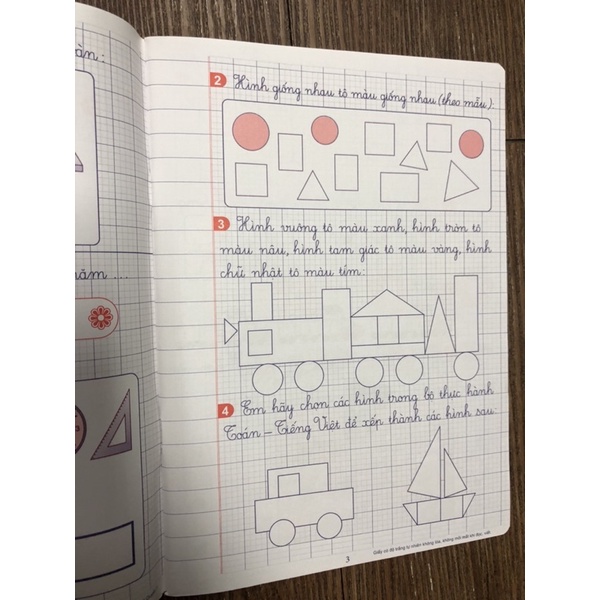 àn:
2 Hình giống nhau tô màu giống nhau (theo mẫu).
3 Hình vuông tô màu xanh, hình tròn tô
màu nâu, hình tam giác tô màu vàng, hình
chữ nhật tô màu tím.
4 Em hãy chọn các hình trong bộ thực hành
Toán - Tiếng Việt để xếp thành các hình sau:
3
Giấy có độ trắng tự nhiên không lóa, không mỏi mắt khi đọc, viết